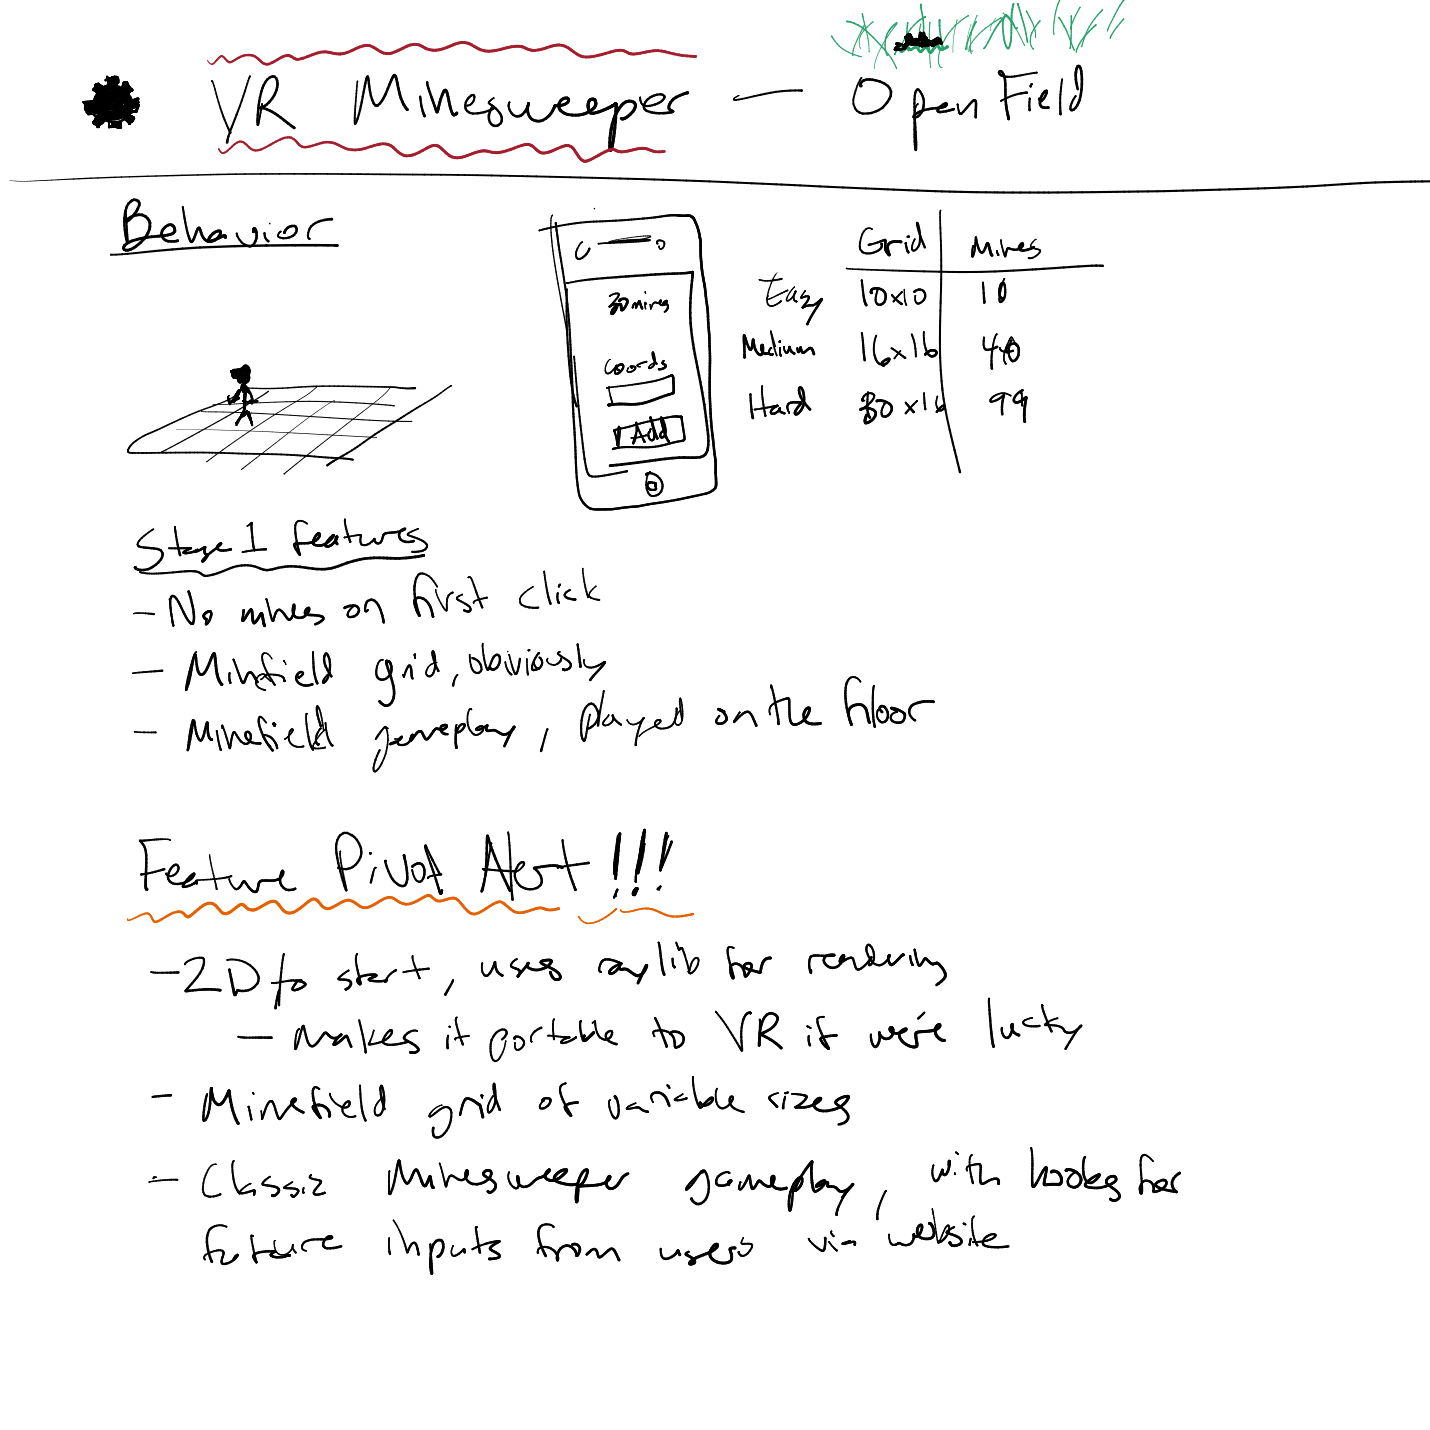 VR Minesweeper — Open Field
Behavior
30 mines
Coords
Add
Grid Mines
Easy 10x10 10
Medium 16x16 40
Hard 30x16 99
Stage 1 features
- No mines on first click
- Minefield grid, obviously
- Minefield gameplay, played on the floor
Feature Pivot Alert!!!
- 2D to start, uses raylib for rendering
- Makes it portable to VR if we're lucky
- Minefield grid of variable sizes
- Classic Minesweeper gameplay, with hooks for
future inputs from users via website